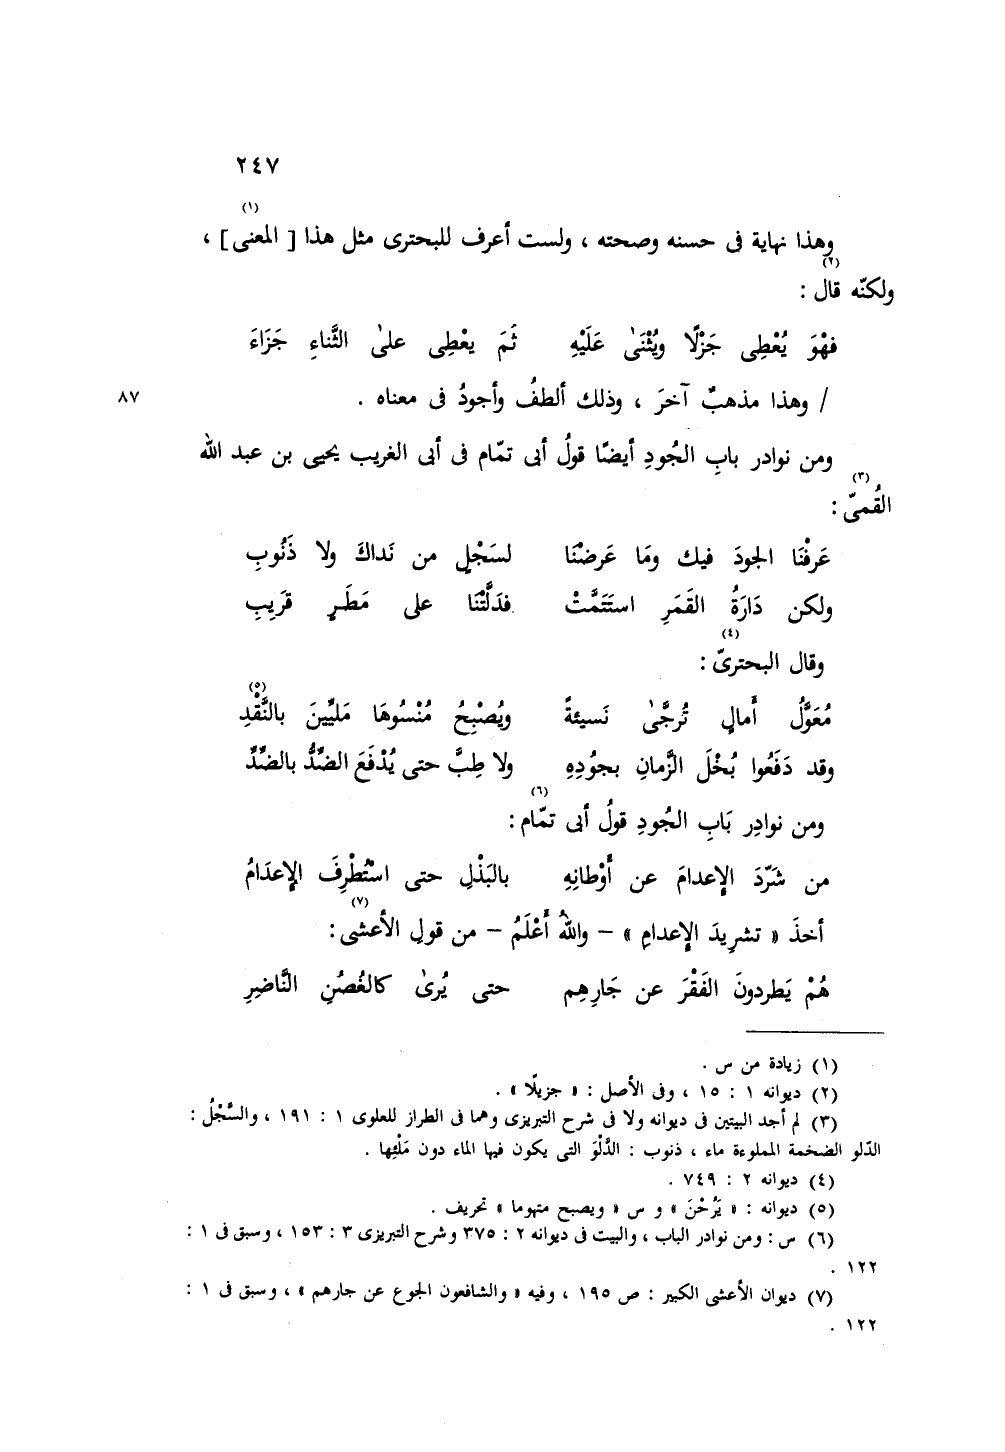 ٢٤٧
(١)
وهذا نهاية فى حسنه وصحته ، ولست أعرف للبحترى مثل هذا [ المعنى ] ،
(٢)
ولكنّه قال :
فهْوَ يُعْطِى جَزْلًا ويُثْنَىٰ عَلَيْهِ ثَمَ يعْطِى علىٰ الثَّناءِ جَزَاءَ
/ وهذا مذهبٌ آخرَ ، وذلك ألطفُ وأجودُ فى معناه . ٨٧
ومن نوادر بابِ الجُودِ أيضًا قولُ أبى تمّام فى أبى الغريب يحيى بن عبد الله
(٣)
القُمىّ :
عَرفْنَا الجودَ فيك ومَا عَرضْنَا لسَجْلٍ من نَداكَ ولا ذَنُوبِ
ولكن دَارَةُ القَمَرِ استَتَمَّتْ فدَلَّتْنَا على مَطَرٍ قَرِيبِ
(٤)
وقال البحترىّ :
(٥)
مُعَوَّلُ أَمالٍ تُرجَّىٰ نَسيئةً ويُصْبِحُ مُنْسُوهَا مَليِّينَ بالنَّقْدِ
وقد دَفَعُوا بُخْلَ الزَّمانِ بجوُدِهِ ولا طِبَّ حتى يُدْفَعَ الضِّدُّ بالضِّدِّ
(٦)
ومن نوادِر بَابِ الجُودِ قولُ أبى تمّام :
من شَرّدَ الإعدامَ عن أَوْطانِهِ بالبَذْلِ حتى اسْتُطْرِفَ الإعدَامُ
(٧)
أخذَ « تشرِيدَ الإعدامِ » – واللهُ أَعْلَمُ – من قولِ الأعشى :
هُمْ يَطردونَ الفَقْرَ عن جَارِهِم حتى يُرىٰ كالغُصُنِ النَّاضِرِ
(١) زيادة من س .
(٢) ديوانه ١ : ١٥ ، وفى الأصل : « جزيلًا » .
(٣) لم أجد البيتين فى ديوانه ولا فى شرح التبريزى وهما فى الطراز للعلوى ١ : ١٩١ ، والسَّجْلُ :
الدّلو الضخمة المملوءة ماء ، ذنوب : الدَّلْوَ التى يكون فيها الماء دون مَلْئِها .
(٤) ديوانه ٢ : ٧٤٩ .
(٥) ديوانه : « يَرُحْنَ » و س « ويصبح متهوما » تحريف .
(٦) س : ومن نوادر الباب ، والبيت فى ديوانه ٢ : ٣٧٥ وشرح التبريزى ٣ : ١٥٣ ، وسبق فى ١ :
١٢٢ .
(٧) ديوان الأعشى الكبير : ص ١٩٥ ، وفيه « والشافعون الجوع عن جارهم » ، وسبق فى ١ :
١٢٢ .